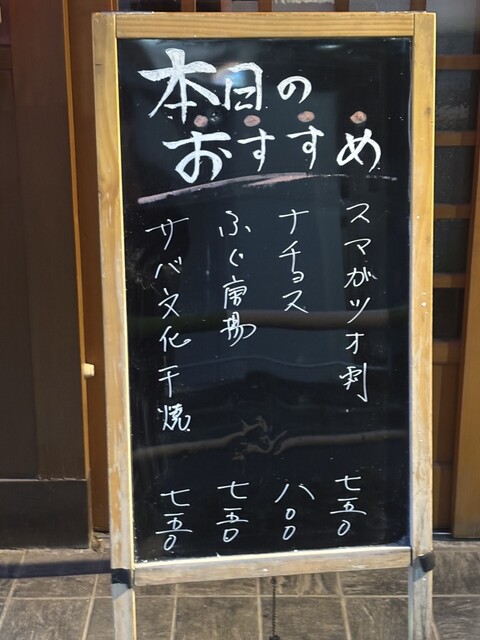 本日の
おすすめ
スマガツオ刺
七五〇
ナチョス
八〇〇
ふぐ唐揚
七五〇
サバ文化干焼
七五〇